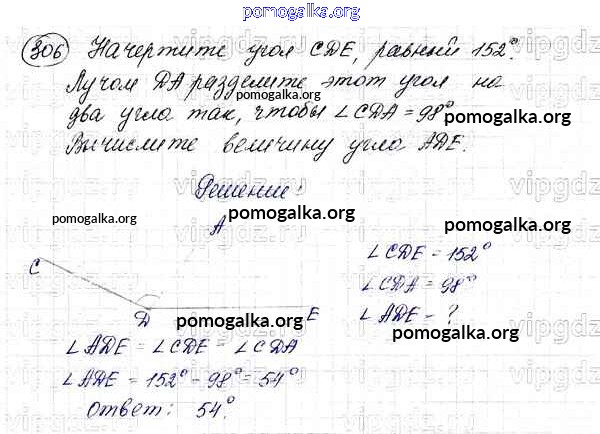 pomogalka.org
306 Начертите угол CDE, равный 152°.
Лучом DA разделите этот угол на
pomogalka.org
два угла так, чтобы ∠CDA = 98°
pomogalka.org
Вычислите величину угла ADE.
Решение:
pomogalka.org
pomogalka.org
pomogalka.org
A
C
∠CDE = 152°
∠CDA = 98°
D
pomogalka.org
E
∠ADE - ?
pomogalka.org
∠ADE = ∠CDE = ∠CDA
∠ADE = 152° - 98° = 54°
Ответ: 54°.
vipgdz.ru